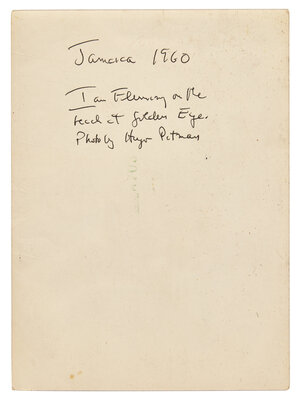 Jamaica 1960
Ian Fleming on the
beach at Golden Eye.
Photo by Hugo Pitman